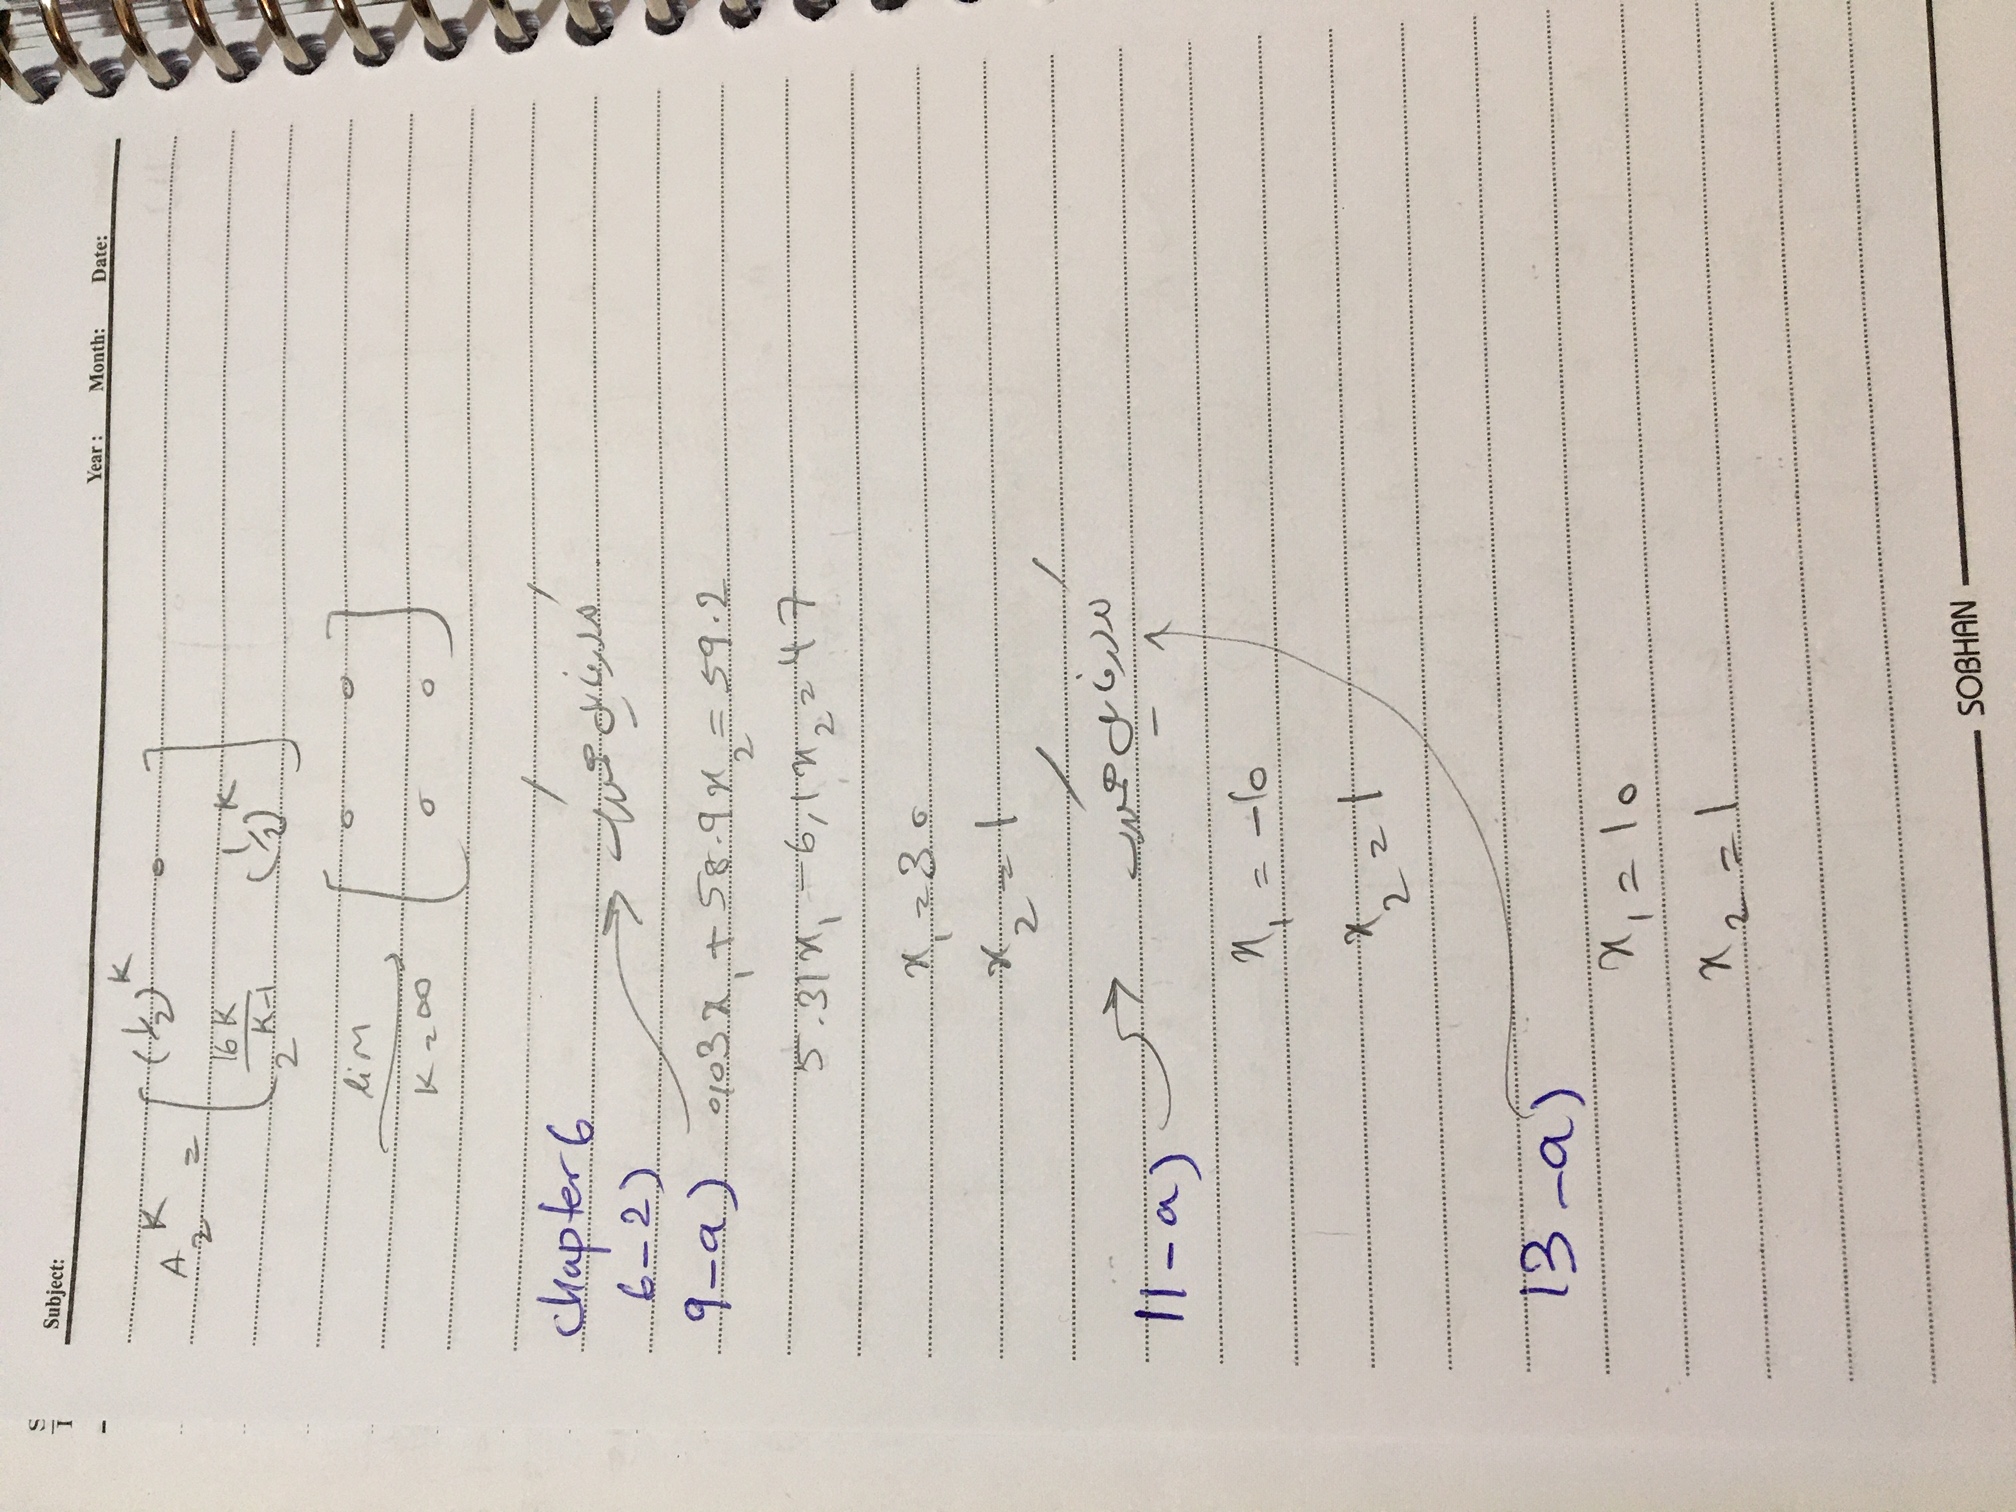 S
I
Subject:
Year : Month: Date:
A₂ᴷ = [ (1/2)ᴷ 0
16K/2ᴷ⁻¹ (1/2)ᴷ ]
lim K=∞ [ 0 0
0 0 ]
chapter 6
6-2)
کد در فایل هم است
9-a) 0,03x₁ + 58.9x₂ = 59.2
5.31x₁ - 6,1x₂ = 47
x₁ = 30
x₂ = 1
کد در فایل هم است
11-a)
x₁ = -10
x₂ = 1
13-a)
x₁ = 10
x₂ = 1
SOBHAN